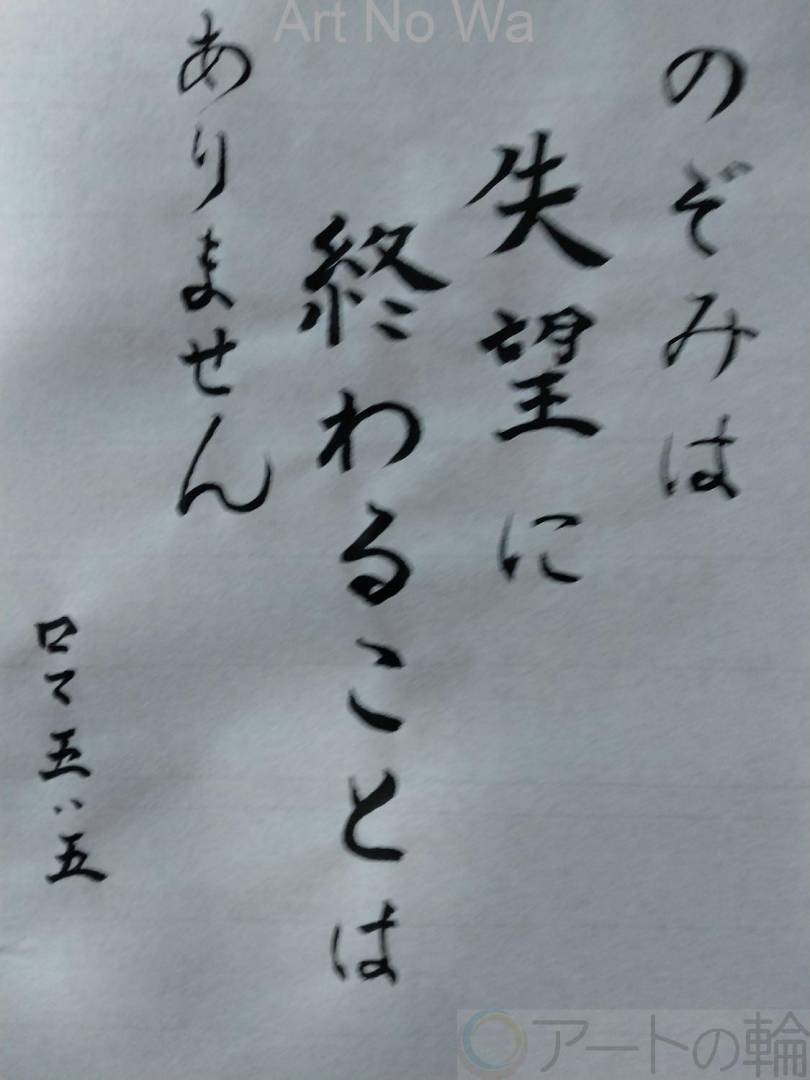 Art No Wa
のぞみは
失望に
終わることは
ありません
ロマ五:五
アートの輪